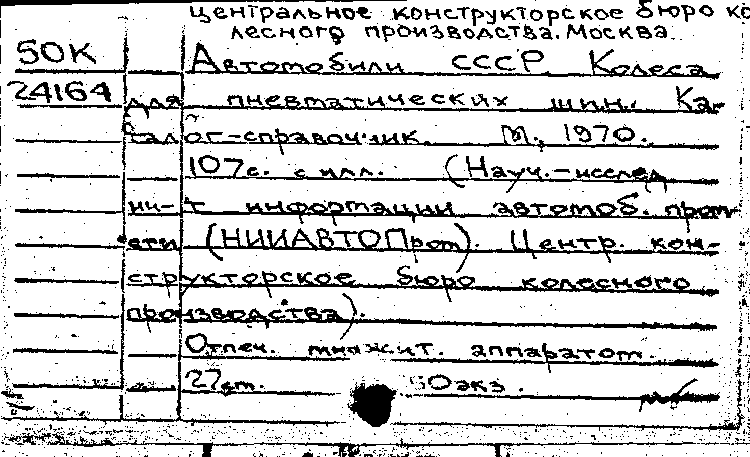 центральное конструкторское бюро ко
лесного производства. Москва.
50К Автомобили СССР. Колеса
24164 для пневматических шин. Ка-
талог-справочник. М., 1970.
107с. с илл. (Науч.-исслед
ин-т информации автомоб. пром-
сти (НИИАВТОПром). Центр. кон-
структорское бюро колесного
производства).
Отпеч. множит. аппаратом.
22см. 50экз.